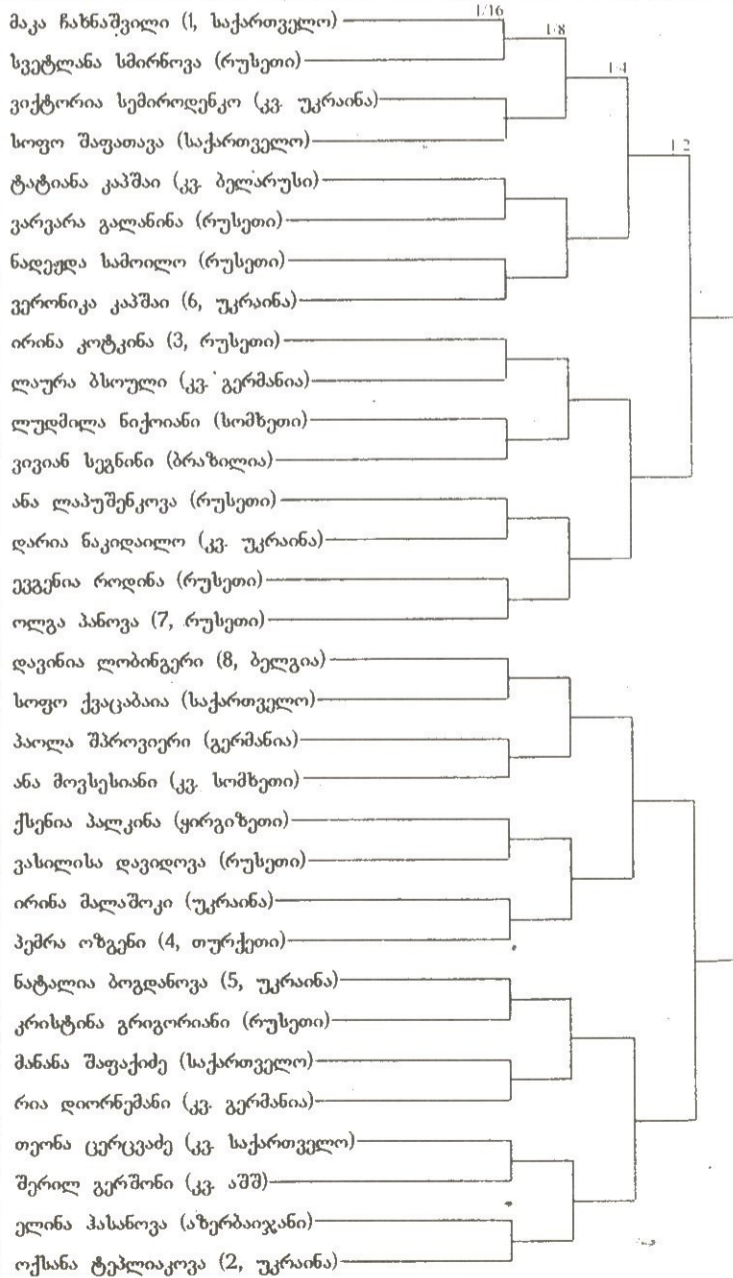 1/16
1/8
1/4
1/2
მაკა ჩახნაშვილი (1, საქართველო)
სვეტლანა სმირნოვა (რუსეთი)
ვიქტორია სემიროდენკო (კვ. უკრაინა)
სოფო შაფათავა (საქართველო)
ტატიანა კაპშაი (კვ. ბელარუსი)
ვარვარა გალანინა (რუსეთი)
ნადეჟდა სამოილო (რუსეთი)
ვერონიკა კაპშაი (6, უკრაინა)
ირინა კოტკინა (3, რუსეთი)
ლაურა ბსოული (კვ. გერმანია)
ლუდმილა ნიქოიანი (სომხეთი)
ვივიან სეგნინი (ბრაზილია)
ანა ლაპუშენკოვა (რუსეთი)
დარია ნაკიდაილო (კვ. უკრაინა)
ევგენია როდინა (რუსეთი)
ოლგა პანოვა (7, რუსეთი)
დავინია ლობინგერი (8, ბელგია)
სოფო ქვაცაბაია (საქართველო)
პაოლა შპროვიერი (გერმანია)
ანა მოვსესიანი (კვ. სომხეთი)
ქსენია პალკინა (ყირგიზეთი)
ვასილისა დავიდოვა (რუსეთი)
ირინა მალაშოკი (უკრაინა)
პემრა ოზგენი (4, თურქეთი)
ნატალია ბოგდანოვა (5, უკრაინა)
კრისტინა გრიგორიანი (რუსეთი)
მანანა შაფაქიძე (საქართველო)
რია დიორნემანი (კვ. გერმანია)
თეონა ცერცვაძე (კვ. საქართველო)
შერილ გერშონი (კვ. აშშ)
ელინა ჰასანოვა (აზერბაიჯანი)
ოქსანა ტეპლიაკოვა (2, უკრაინა)